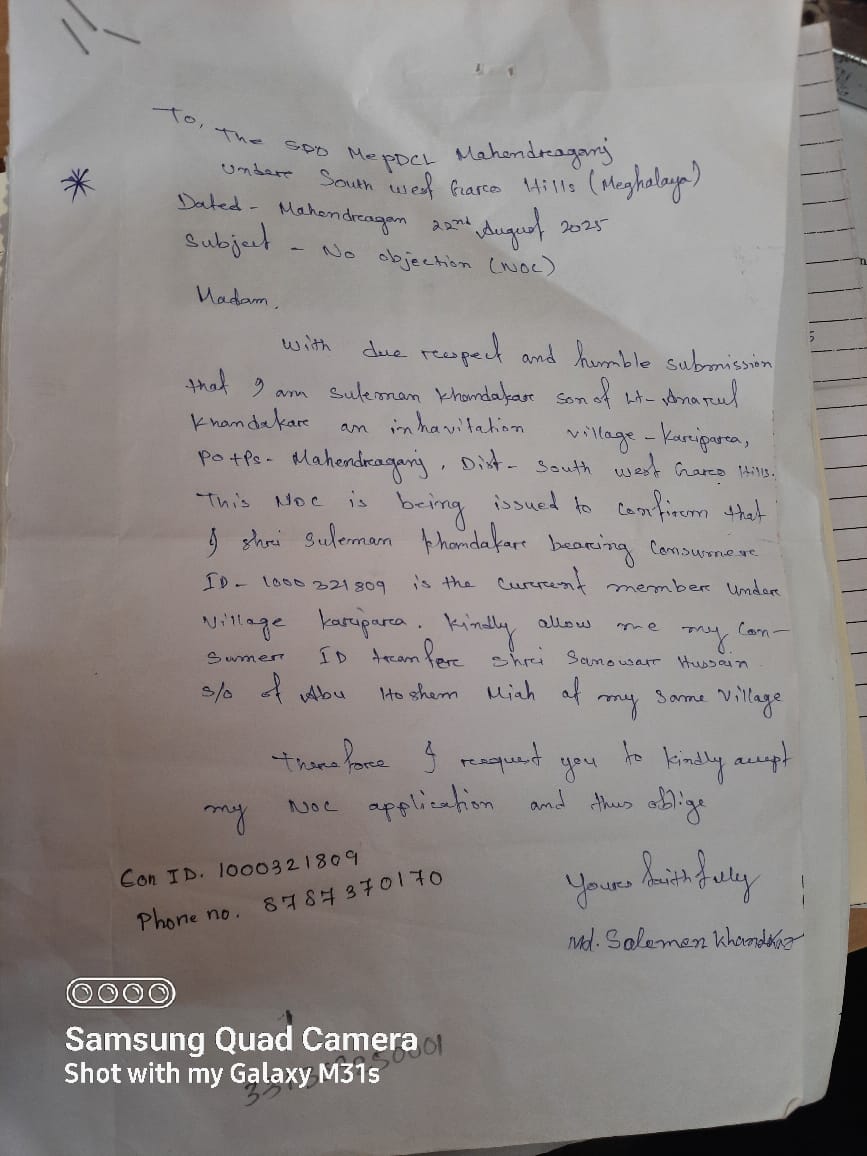 To,
The SDO MePDCL Mahendreaganj
Undere South west Gareo Hills (Meghalaya)
Dated - Mahendreagan 22nd August 2025
Subject - No objection (NOC)
Madam.
With due reespect and humble submission
that I am Suleman Khandakare son of Lt- Anarul
Khandakare an inhavitation village - Kareiparea,
Po+Ps- Mahendreaganj, Dist- South west Gareo Hills.
This NOC is being issued to Confirem that
I shrei Suleman Khandakare beareing Consumere
ID- 1000321809 is the Curerent membere Undere
Village Kareiparea. Kindly allow me my Con-
sumere ID treanfere Shrei Sanowarr Hussain
S/o of Abu Hoshem Miah of my Same Village
Therefore I reequest you to kindly accept
my NOC application and thus oblige
Con ID. 1000321809
Phone no. 8787370170
Youres faithfully
Md. Soleman Khandkar
Samsung Quad Camera
Shot with my Galaxy M31s